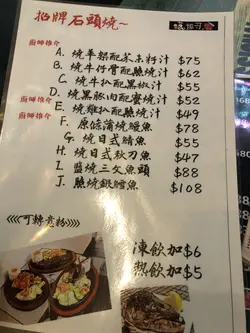 招牌石頭燒~
廚師推介
A. 燒羊架配芥末籽汁 $75
B. 燒牛仔骨配燒汁 $62
C. 燒牛扒配黑椒汁 $55
廚師推介
D. 燒黑豚肉配蜜燒汁 $52
廚師推介
E. 燒雞扒配燒汁 $49
F. 原條蒲燒鰻魚 $78
G. 燒日式鯖魚 $55
H. 燒日式秋刀魚 $47
I. 鹽燒三文魚頭 $88
J. 燒銀鱈魚 $108
<<<<可轉意粉>>>>
凍飲加$6
熱飲加$5